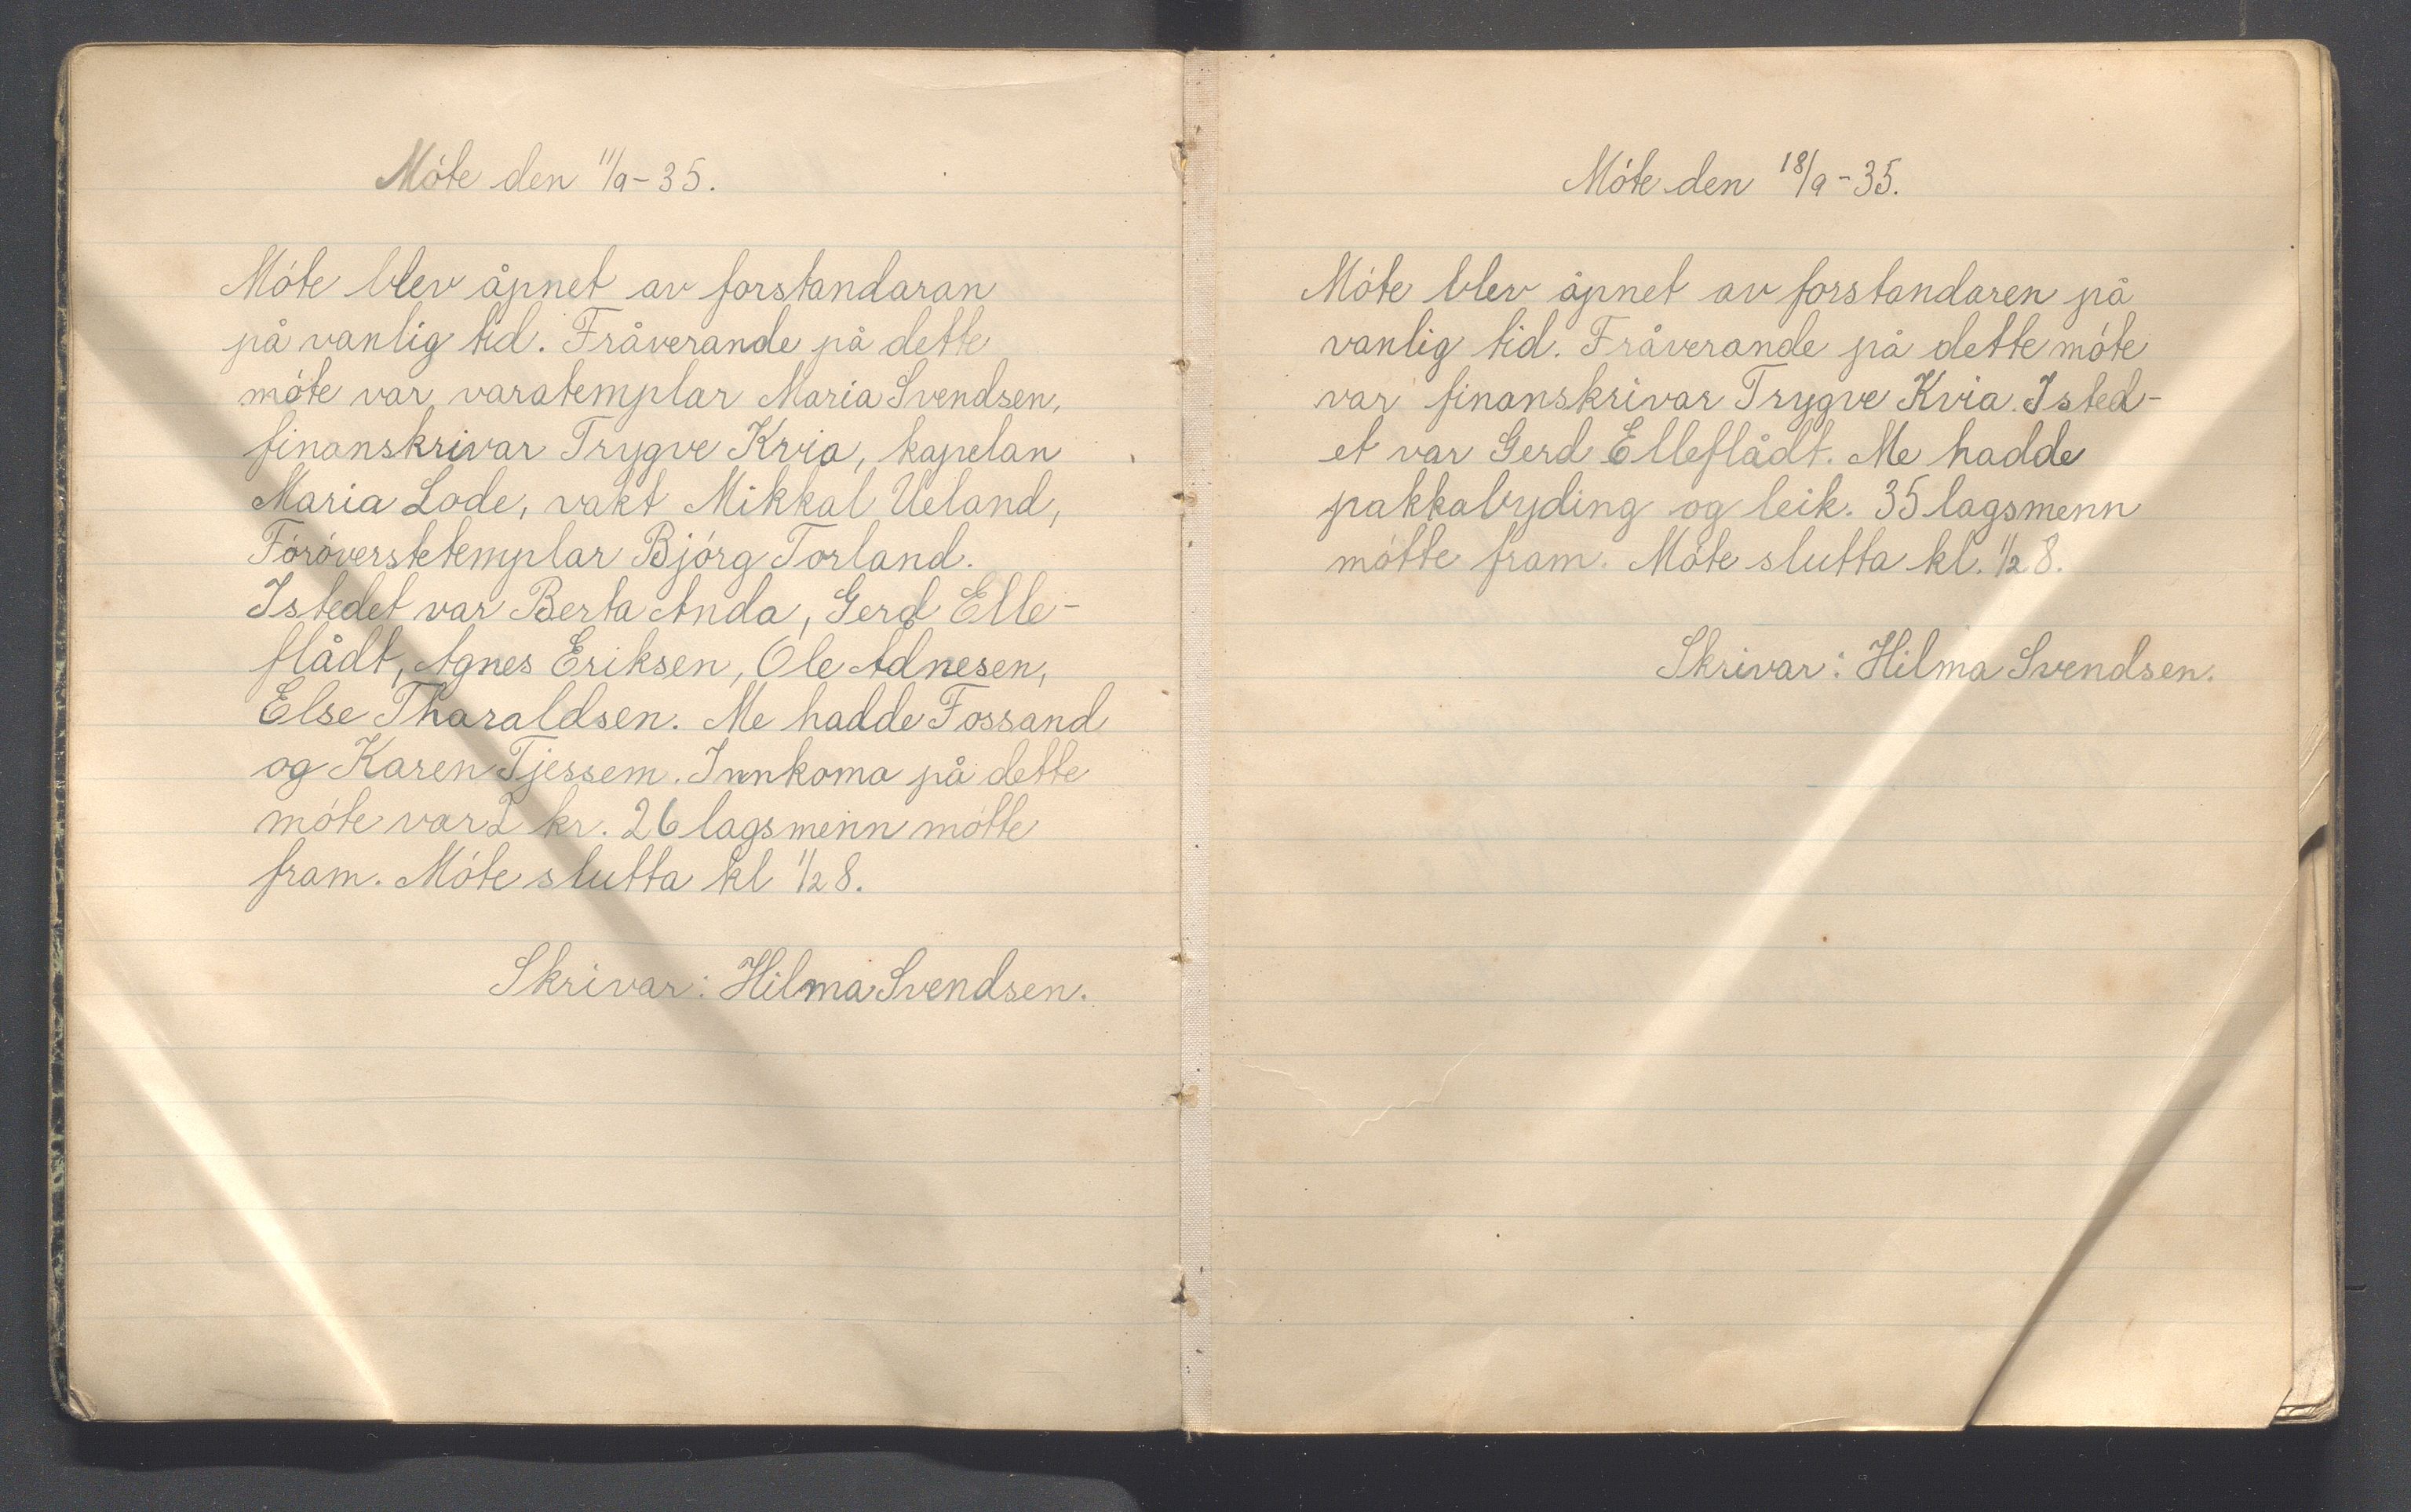 Móte den 11/9-35.
Móte blev åpnet av forstandaran
på vanlig tid. Fråverande på dette
móte var varatemplar Maria Svendsen,
finanskrivar Trygve Kvia, kapelan
Maria Lode, vakt Mikkal Ueland,
Fóróverstetemplar Bjórg Torland.
Istedet var Berta Anda, Gerd Elle-
flådt, Agnes Eriksen, Ole Adnesen,
Else Tharaldsen. Me hadde Fossand
og Karen Tjessem. Innkoma på dette
móte var 2 kr. 26 lagsmenn mótte
fram. Móte slutta kl 1/2 8.
Skrivar: Hilma Svendsen.
Móte den 18/9-35.
Móte blev åpnet av forstandaren på
vanlig tid. Fråverande på dette móte
var finanskrivar Trygve Kvia. Isted-
et var Gerd Elleflådt. Me hadde
pakkabyding og leik. 35 lagsmenn
mótte fram. Móte slutta kl. 1/2 8.
Skrivar: Hilma Svendsen.